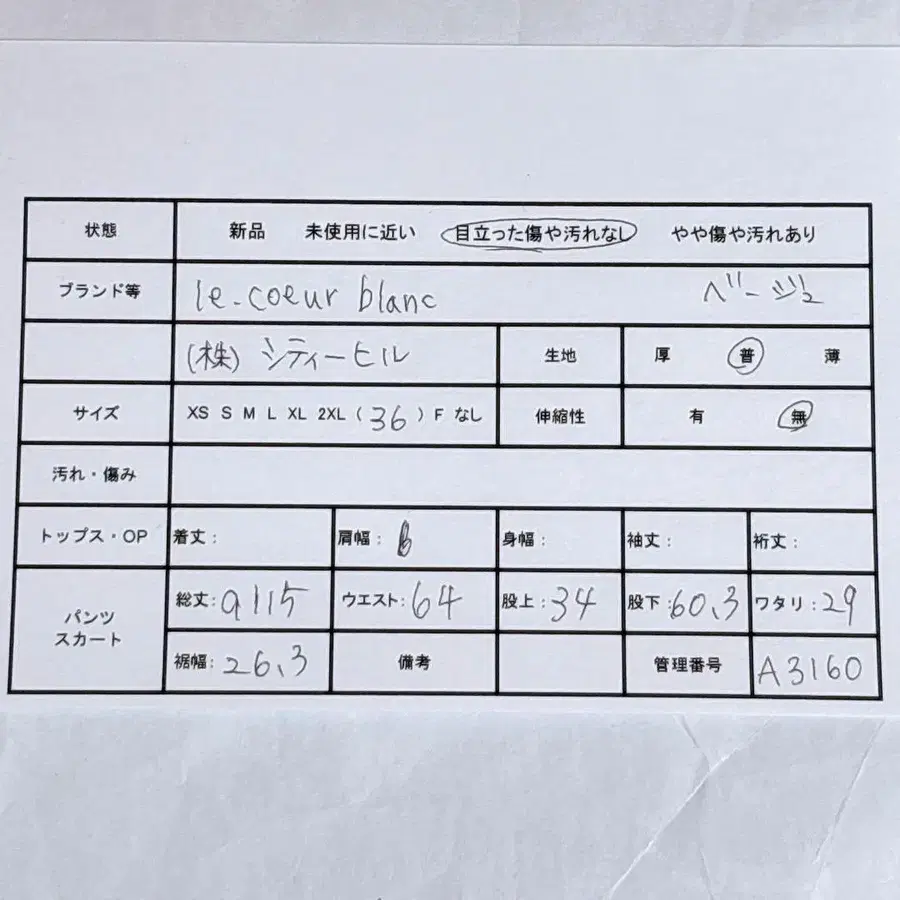 状態 新品 未使用に近い 目立った傷や汚れなし やや傷や汚れあり
ブランド等 le.coeur blanc ベージュ
(株) シティーヒル 生地 厚 普 薄
サイズ XS S M L XL 2XL (36) F なし 伸縮性 有 無
汚れ・傷み
トップス・OP 着丈: 肩幅: 身幅: 袖丈: 裄丈:
パンツ スカート 総丈: 9115 ウエスト: 64 股上: 34 股下: 60.3 ワタリ: 29
裾幅: 26.3 備考 管理番号 A3160